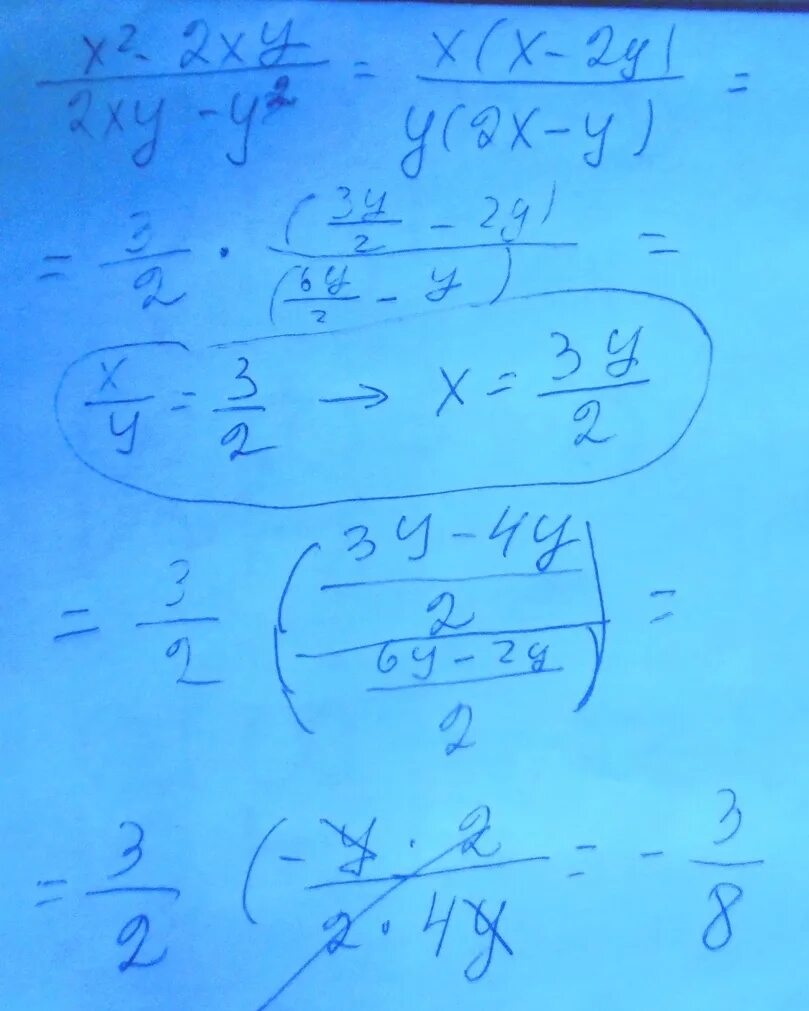 x² - 2xy / 2xy - y² = x(x - 2y) / y(2x - y) =
= 3/2 · (3y/2 - 2y) / (6y/2 - y) =
x/y = 3/2 → x = 3y/2
= 3/2 ((3y - 4y)/2 / (6y - 2y)/2) =
= 3/2 (-y · 2 / 2 · 4y = - 3/8